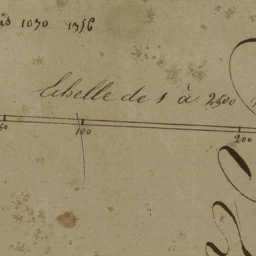 1030 1356
Echelle de 1 à 2500
100 200